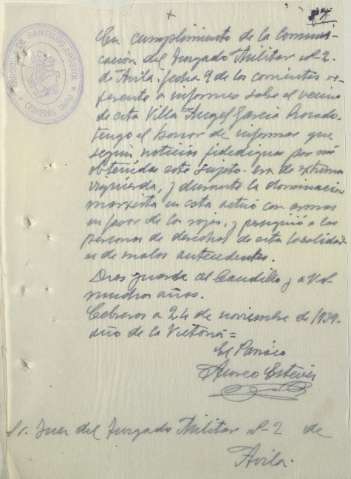 En cumplimiento de la Comuni-
cación del Juzgado Militar nº 2
de Avila, fecha 9 de los corrientes re-
ferente a informes sobre el vecino
de esta Villa Angel García
tengo el honor de informar que
según noticias fidedignas por mi
obtenidas este sujeto era de extrema
izquierda, y durante la dominacion
marxista en esta actuó con armas
en favor de los rojos, y persiguió a las
personas de derechas de esta localidad
es de malos antecedentes.
Dios guarde al Caudillo y a Vd
muchos años.
Cebreros a 24 de noviembre de 1939.
año de la Victoria =
El Parróco
Esteves
Sr. Juez del Juzgado Militar nº 2 de
Avila.